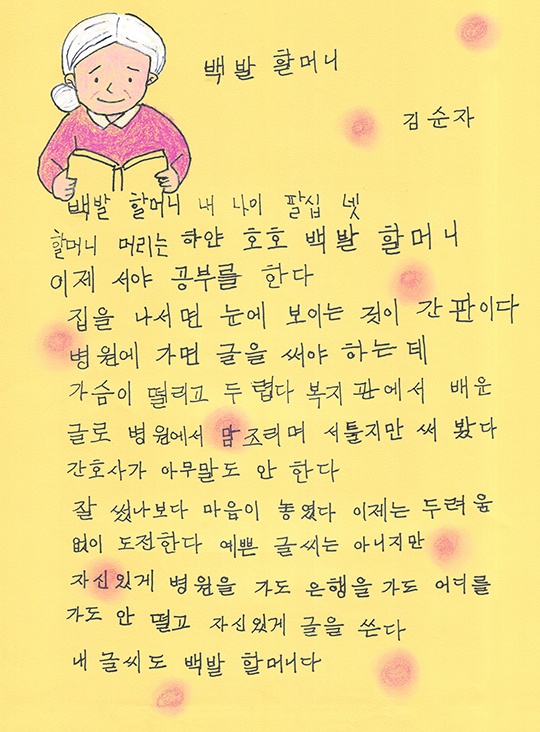 백발 할머니
김순자
백발 할머니 내 나이 팔십 넷
할머니 머리는 하얀 호호 백발 할머니
이제 서야 공부를 한다
집을 나서면 눈에 보이는 것이 간판이다
병원에 가면 글을 써야 하는데
가슴이 떨리고 두렵다 복지관에서 배운
글로 병원에서 맘조리며 서툴지만 써 봤다
간호사가 아무말도 안 한다
잘 썼나보다 마음이 놓였다 이제는 두려움
없이 도전한다 예쁜 글씨는 아니지만
자신있게 병원을 가도 은행을 가도 어디를
가도 안 떨고 자신있게 글을 쓴다
내 글씨도 백발 할머니다